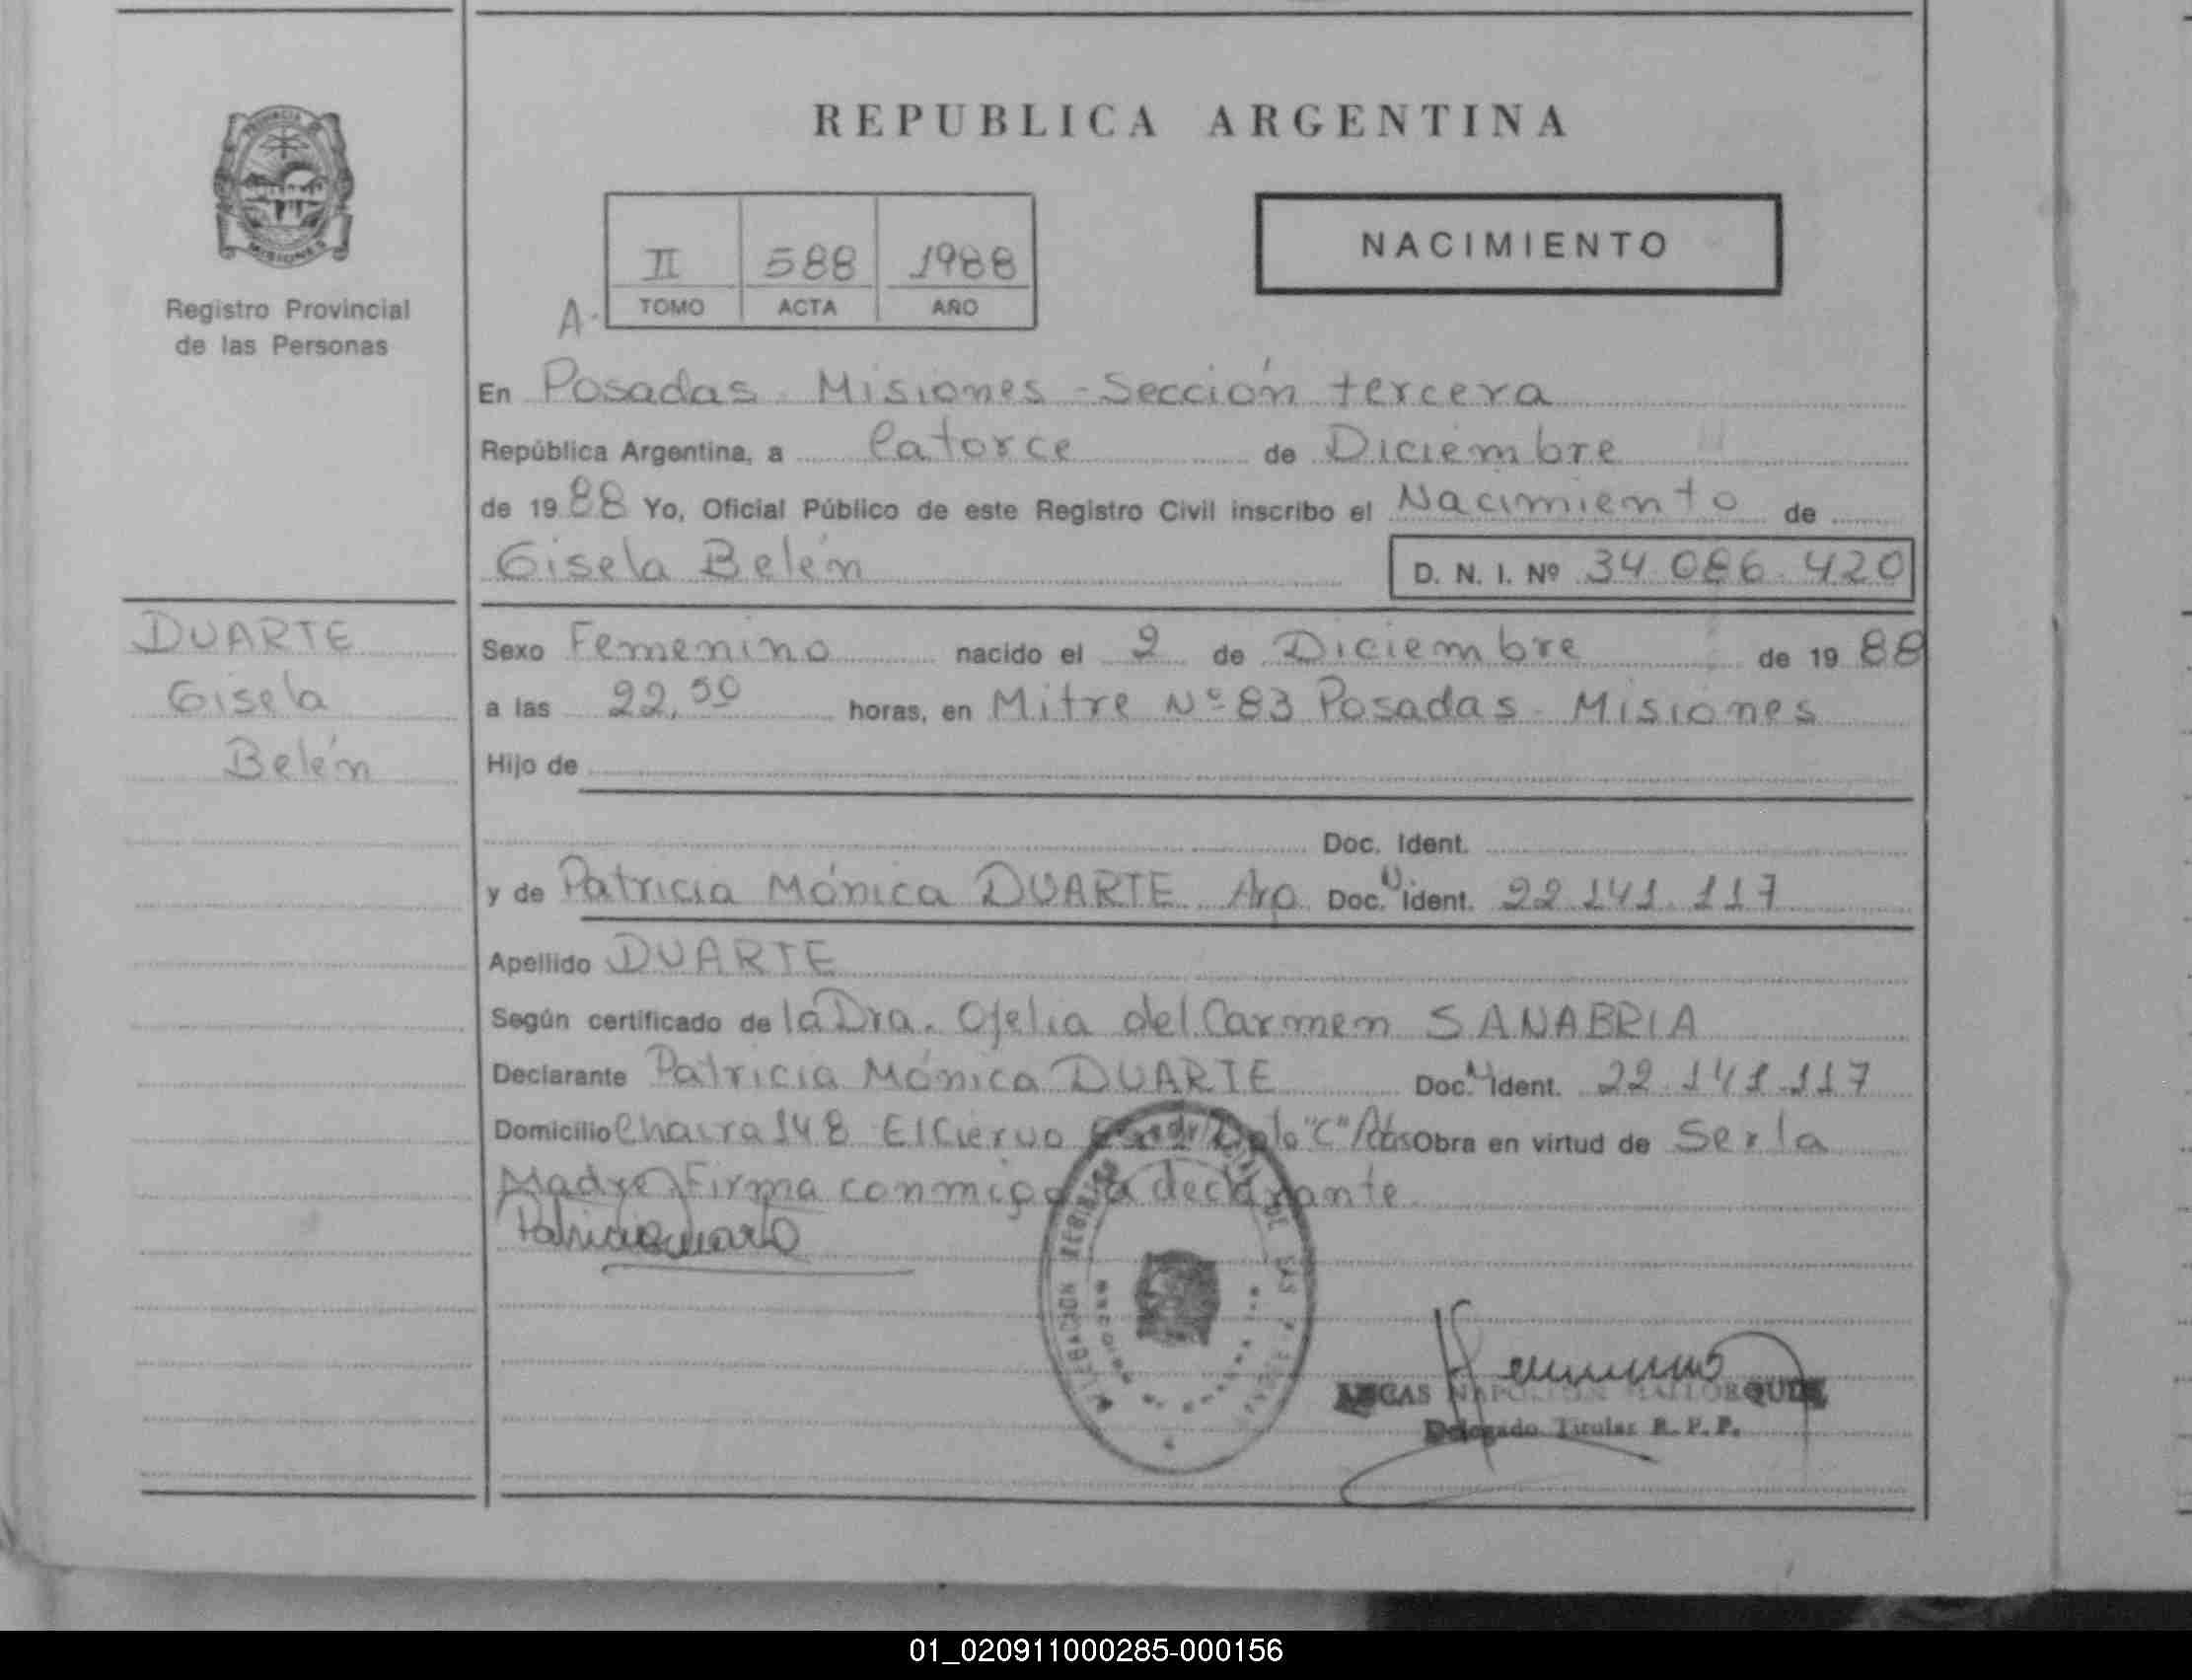 REPUBLICA ARGENTINA
PROVINCIA DE
MISIONES
Registro Provincial
de las Personas
NACIMIENTO
II 588 1988
A- TOMO ACTA AÑO
En Posadas - Misiones - Sección tercera
República Argentina, a Catorce de Diciembre
de 1988 Yo, Oficial Público de este Registro Civil inscribo el Nacimiento de
Gisela Belén D. N. I. Nº 34.086.420
DUARTE
Gisela
Belén
Sexo Femenino nacido el 2 de Diciembre de 1988
a las 22,50 horas, en Mitre Nº 83 Posadas - Misiones
Hijo de
Doc. Ident.
y de Patricia Mónica DUARTE Arg Doc. Ident. 22.141.117
Apellido DUARTE
Según certificado de la Dra. Ofelia del Carmen SANABRIA
Declarante Patricia Mónica DUARTE Doc. Ident. 22.141.117
Domicilio Chacra 148 El Ciervo "C" Obra en virtud de Ser la
Madre Firma conmigo la declarante
Patricia Duarte
DELEGACION DE LAS
MISIONES
NAPOLEON MALLORQUIN
Delegado Titular R. P. P.
01_020911000285-000156